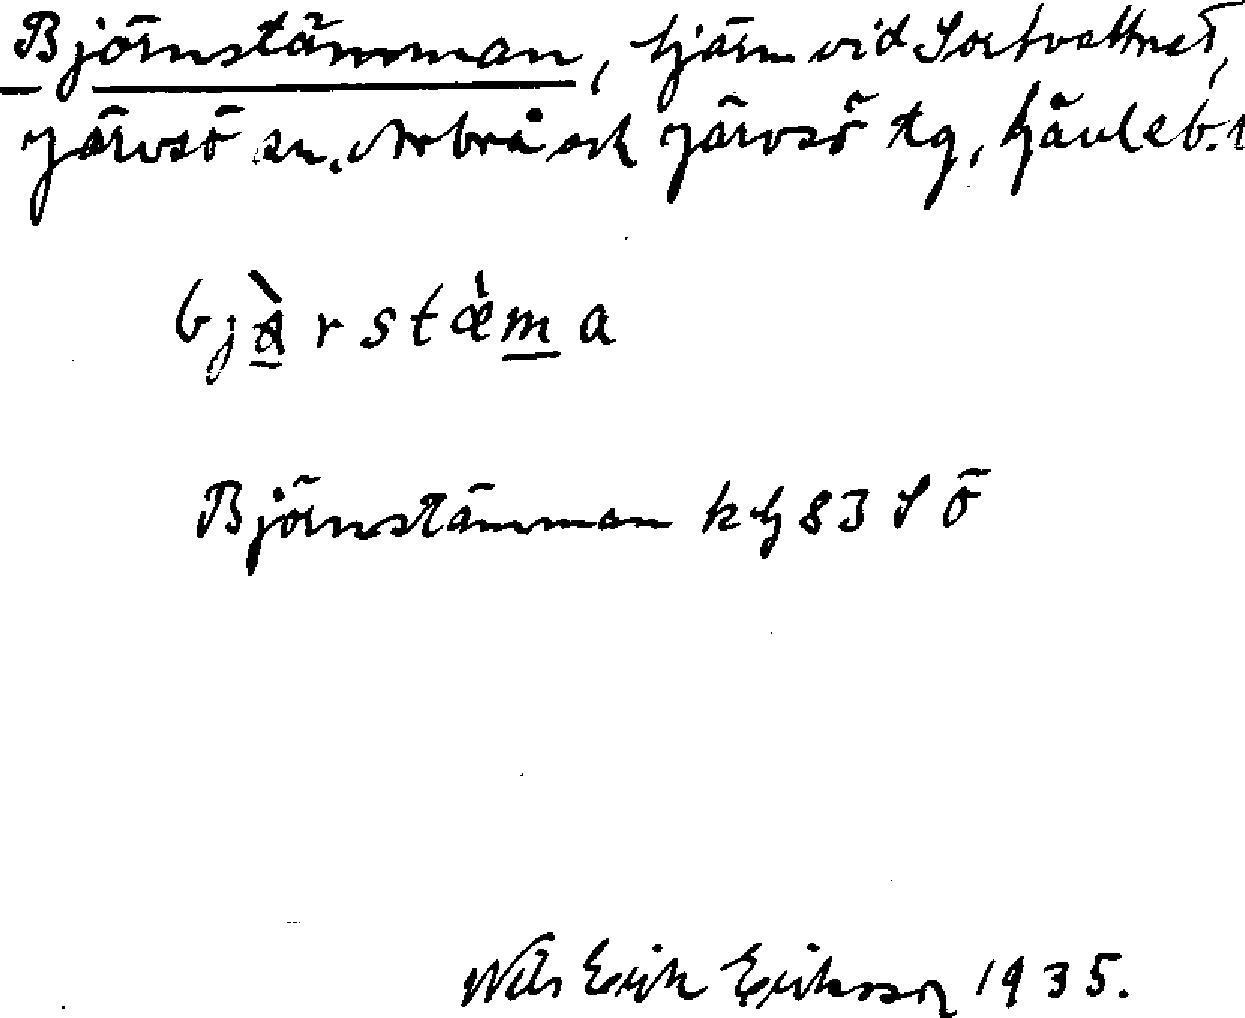 Björnstämman, tjärn vid Sortvattnet,
Järvsö sn. Arbrå och Järvsö tg,
bjàrstæ̀ma
Björnstämman 83 SÖ
Nils Erik Eriksson 1935.